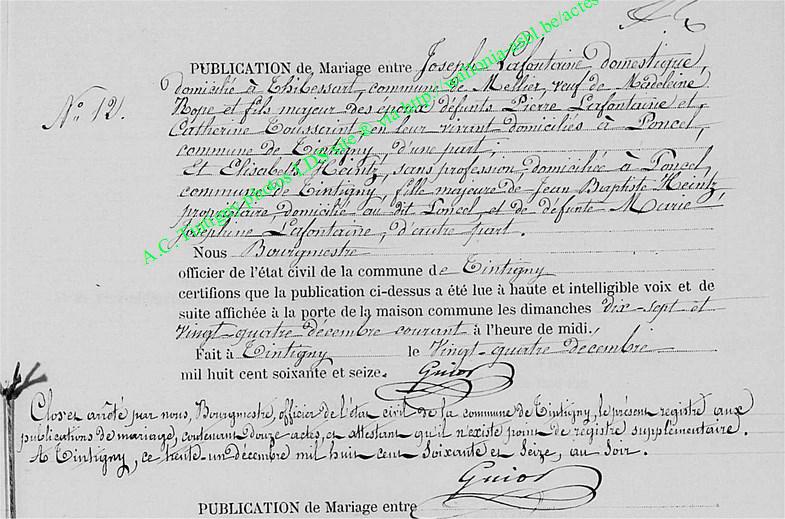 PUBLICATION de Mariage entre Joseph Lafontaine, domestique,
domicilié à Thibessart, commune de Mellier, veuf de Madeleine
Nº 12. Rope et fils majeur des époux défunts Pierre Lafontaine et
Catherine Toussaint en leur vivant domiciliés à Poncel,
commune de Tintigny, d'une part;
Et Elisabeth Heintz, sans profession, domiciliée à Poncel,
commune de Tintigny, fille majeure de Jean Baptiste Heintz,
propriétaire, domicilié au dit Poncel, et de défunte Marie
Josephine Lafontaine, d'autre part.
Nous Bourgmestre
officier de l'état civil de la commune de Tintigny
certifions que la publication ci-dessus a été lue à haute et intelligible voix et de
suite affichée à la porte de la maison commune les dimanches dix-sept et
vingt-quatre décembre courant à l'heure de midi.
Fait à Tintigny le vingt-quatre décembre
mil huit cent soixante et seize. Guiot
Clos et arrêté par nous, Bourgmestre, officier de l'état civil de la commune de Tintigny, le présent registre aux
publications de mariage, contenant douze actes, et attestant qu'il n'existe point de registre supplémentaire.
A Tintigny, ce trente-un décembre mil huit cent soixante et seize, au soir.
Guiot
PUBLICATION de Mariage entre
A.C. Tintigny photos J.D. via http://
asbl.be/actes